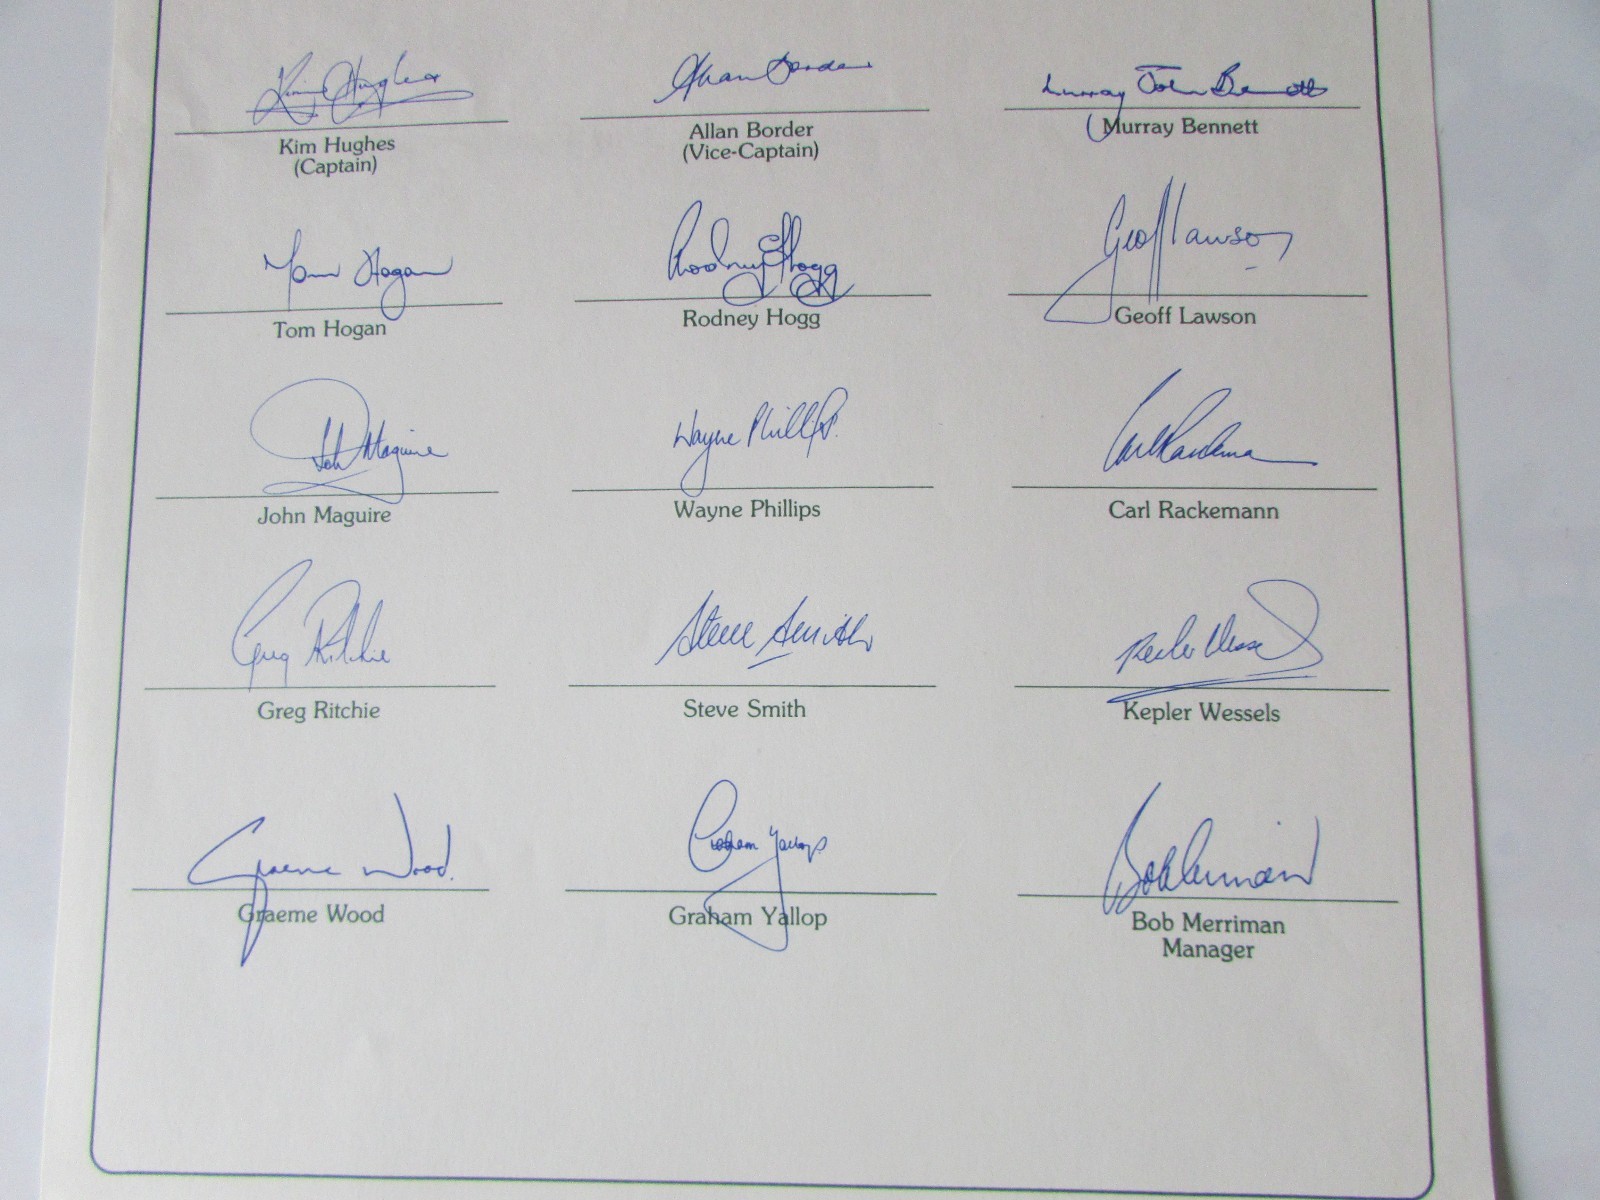 Kim Hughes Allan Border Murray John Bennett
Kim Hughes Allan Border Murray Bennett
(Captain) (Vice-Captain)
Tom Hogan Rodney Hogg Geoff Lawson
Tom Hogan Rodney Hogg Geoff Lawson
John Maguire Wayne Phillips Carl Rackemann
John Maguire Wayne Phillips Carl Rackemann
Greg Ritchie Steve Smith Kepler Wessels
Greg Ritchie Steve Smith Kepler Wessels
Graeme Wood Graham Yallop Bob Merriman
Graeme Wood Graham Yallop Bob Merriman
Manager